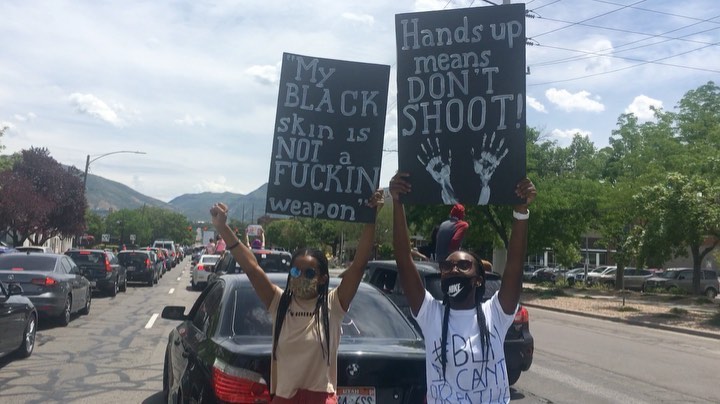 "My
BLACK
skin is
NOT a
FUCKIN
weapon"
Hands up
means
DON'T
SHOOT!
NIKE
#BLM
I CAN'T
BREATHE